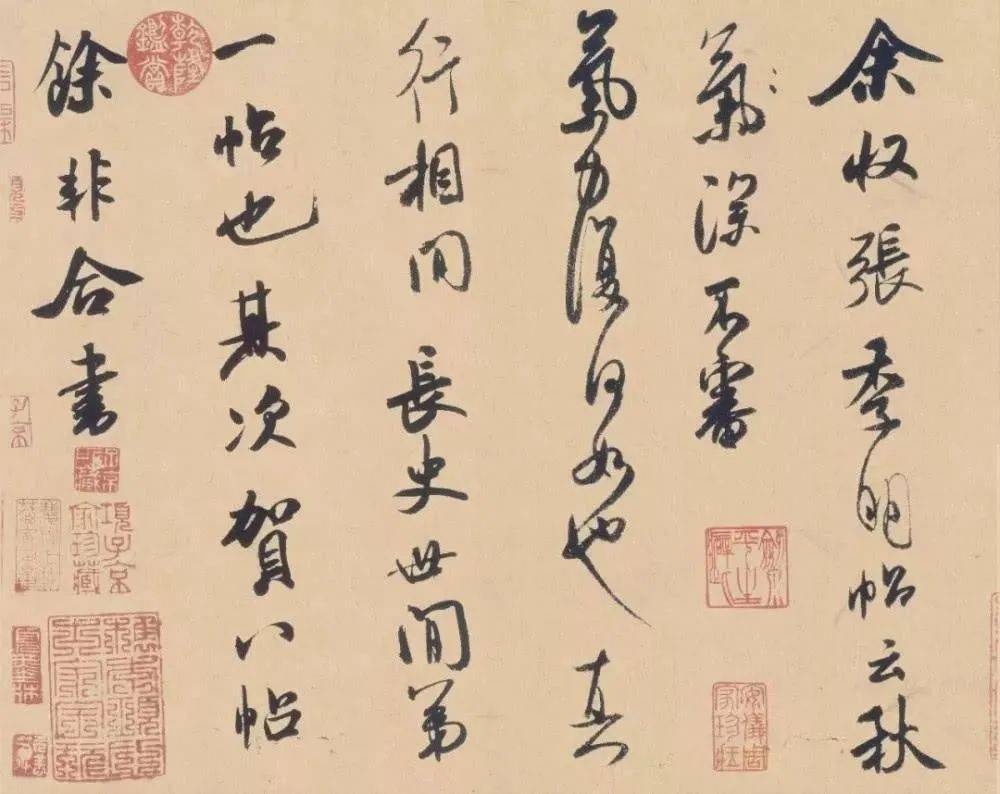 余收張季明帖云秋
氣深不審
氣力復何如也真
行相間長史世間第
一帖也其次賀八帖
餘非合書
乾隆鑑賞
安儀周家珍藏
項子京家珍藏
子京